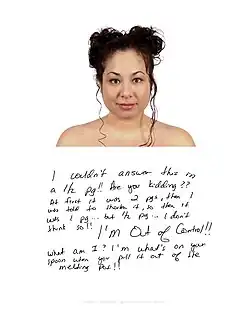 I couldn't answer this in
a 1/2 pg!! Are you kidding??
At first it was 2 pgs, then I
was told to shorten it, so then it
was 1 pg... but 1/2 pg... I don't
think so!! I'm Out of Control!!
What am I? I'm what's on your
spoon when you pull it out of the
melting pot!!